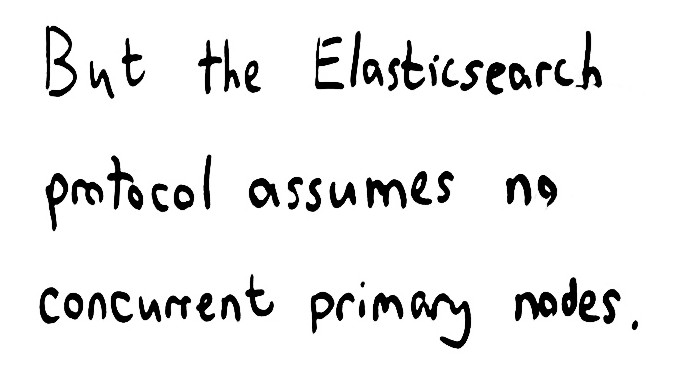 But the Elasticsearch
protocol assumes no
concurrent primary nodes.